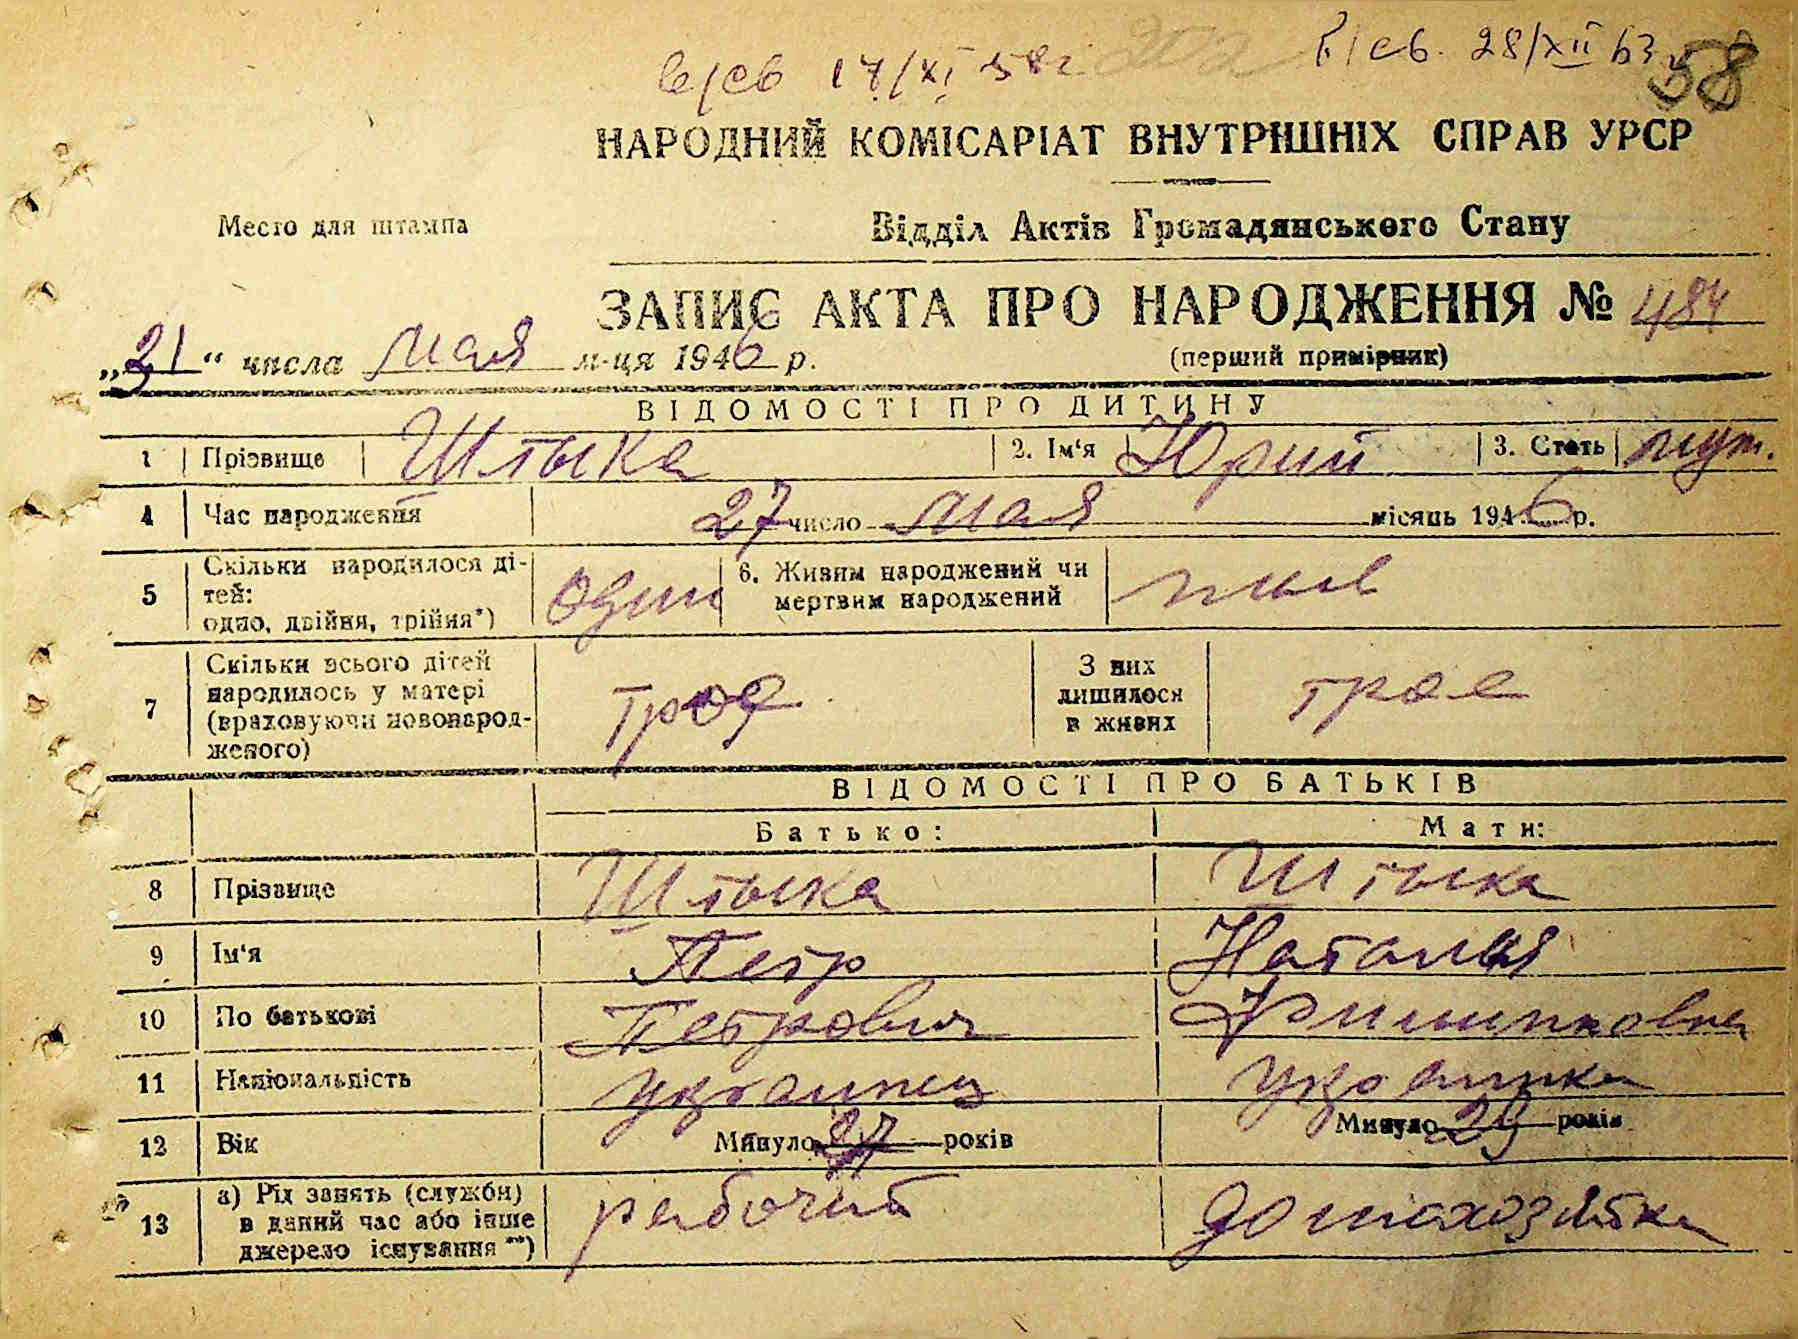 в/св 17/XI 58г
п/св. 28/XII 63
58
НАРОДНИЙ КОМІСАРІАТ ВНУТРІШНІХ СПРАВ УРСР
Место для штампа
Відділ Актів Громадянського Стану
ЗАПИС АКТА ПРО НАРОДЖЕННЯ № 484
„31“ числа мая м-ця 1946 р.
(перший примірник)
ВІДОМОСТІ ПРО ДИТИНУ
1 Прізвище Штыка 2. Ім‘я Юрий 3. Стать муж.
4 Час народження 27 число мая місяць 1946 р.
5 Скільки народилося ді-
тей:
одно, двійня, трійня*) один
6. Живим народжений чи
мертвим народжений жив
7 Скільки всього дітей
народилось у матері
(враховуючи новонарод-
женого) трое
З них
лишилося
в живих трое
ВІДОМОСТІ ПРО БАТЬКІВ
Батько: Мати:
8 Прізвище Штыка Штыка
9 Ім‘я Петр Наталья
10 По батькові Петрович Филипповна
11 Національність украинец украинка
12 Вік Минуло 27 років Минуло 29 років
13 а) Рід занять (служби)
в даний час або інше
джерело існування **) рабочий домохозяйка